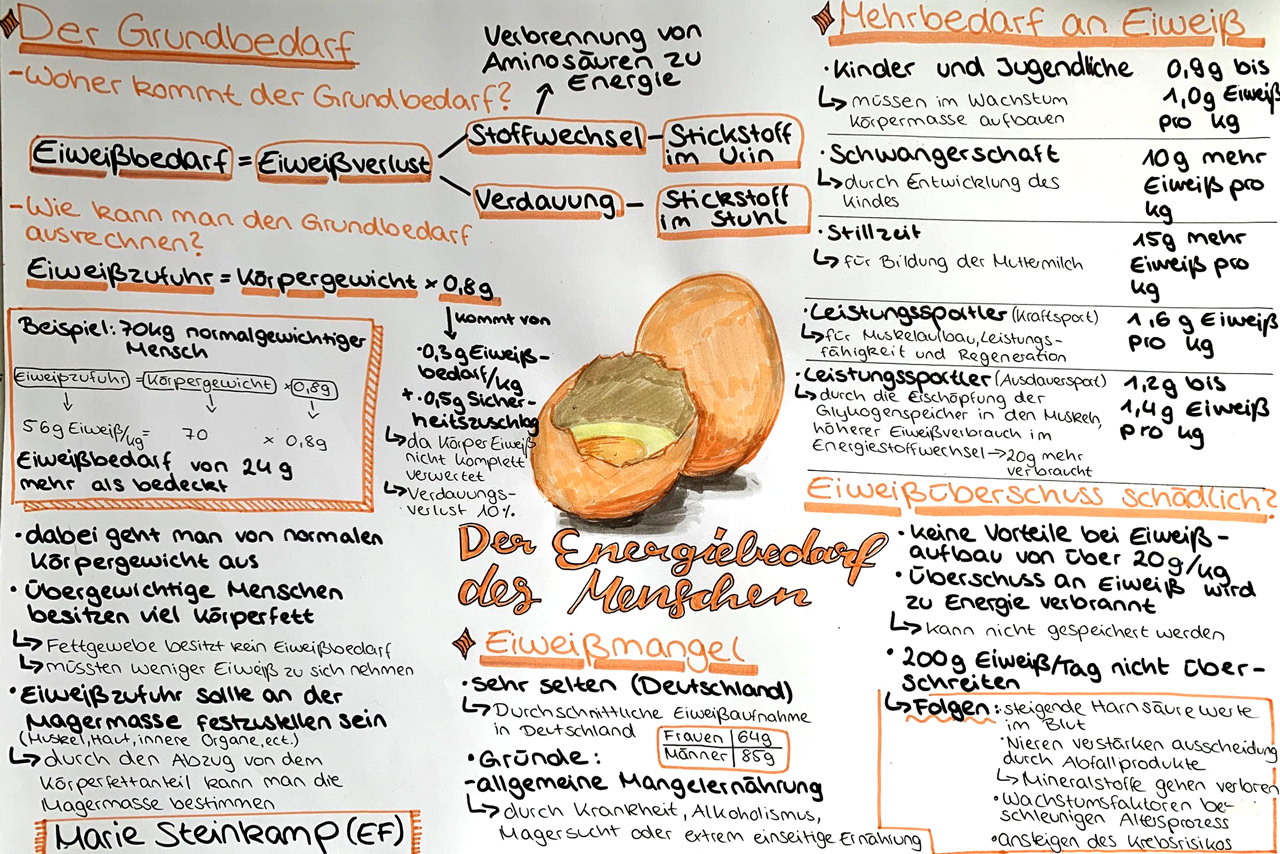 Der Grundbedarf
-Woher kommt der Grundbedarf?
Verbrennung von
Aminosäuren zu
Energie
Eiweißbedarf = Eiweißverlust
Stoffwechsel - Stickstoff
im Urin
Verdauung - Stickstoff
im Stuhl
-Wie kann man den Grundbedarf
ausrechnen?
Eiweißzufuhr = Körpergewicht × 0,8g
kommt von
·0,3g Eiweiß-
bedarf/kg
+·0,5g Sicher-
heitszuschlag
↳ da Körper Eiweiß
nicht komplett
verwertet
↳ Verdauungs-
verlust 10%
Beispiel: 70kg normalgewichtiger
Mensch
Eiweißzufuhr = Körpergewicht × 0,8g
56g Eiweiß/kg = 70 × 0,8g
Eiweißbedarf von 24g
mehr als bedeckt
·dabei geht man von normalen
Körpergewicht aus
·Übergewichtige Menschen
besitzen viel Körperfett
↳ Fettgewebe besitzt kein Eiweißbedarf
↳ müssten weniger Eiweiß zu sich nehmen
·Eiweißzufuhr sollte an der
Magermasse festzustellen sein
(Muskel, Haut, innere Organe, ect.)
↳ durch den Abzug von dem
Körperfettanteil kann man die
Magermasse bestimmen
Marie Steinkamp (EF)
Der Energiebedarf
des Menschen
Eiweißmangel
·sehr selten (Deutschland)
↳ Durchschnittliche Eiweißaufnahme
in Deutschland
Frauen | 64g
Männer | 85g
·Gründe:
-allgemeine Mangelernährung
↳ durch Krankheit, Alkoholismus,
Magersucht oder extrem einseitige Ernährung
Mehrbedarf an Eiweiß
·Kinder und Jugendliche 0,9g bis
1,0g Eiweiß
pro kg
↳ müssen im Wachstum
Körpermasse aufbauen
·Schwangerschaft 10g mehr
Eiweiß pro
kg
↳ durch Entwicklung des
Kindes
·Stillzeit 15g mehr
Eiweiß pro
kg
↳ für Bildung der Muttermilch
·Leistungssportler (Kraftsport) 1,6 g Eiweiß
pro kg
↳ für Muskelaufbau, Leistungs-
fähigkeit und Regeneration
·Leistungssportler (Ausdauersport) 1,2g bis
1,4g Eiweiß
pro kg
↳ durch die Erschöpfung der
Glykogenspeicher in den Muskeln,
höherer Eiweißverbrauch im
Energiestoffwechsel → 20g mehr
verbraucht
Eiweißüberschuss schädlich?
·keine Vorteile bei Eiweiß-
aufbau von über 20g/kg
·Überschuss an Eiweiß wird
zu Energie verbrannt
↳ kann nicht gespeichert werden
·200g Eiweiß/Tag nicht über-
schreiten
↳ Folgen: ·steigende Harnsäurewerte
im Blut
·Nieren verstärken ausscheidung
durch Abfallprodukte
↳ Mineralstoffe gehen verloren
·Wachstumsfaktoren be-
schleunigen Altersprozess
·ansteigen des Krebsrisikos